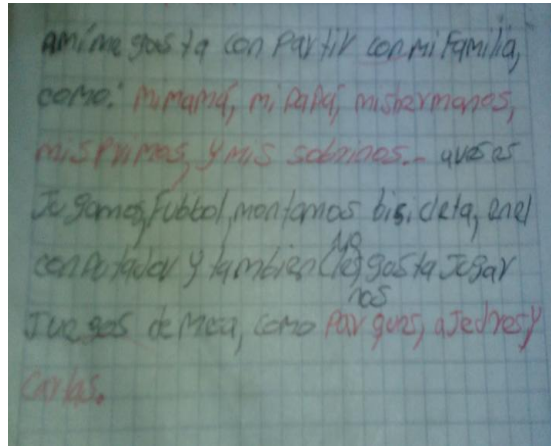 amí me gusta con partir con mi familia,
como: mi mamá, mi papá, mis hermanos,
mis primos, y mis sobrinos.. aveses
Jugamos, fubbol, montamos bisicleta, enel
conputador y tambien (le) gusta Jugar
nos
Juegos de mea, como parques, ajedres y
cartas.